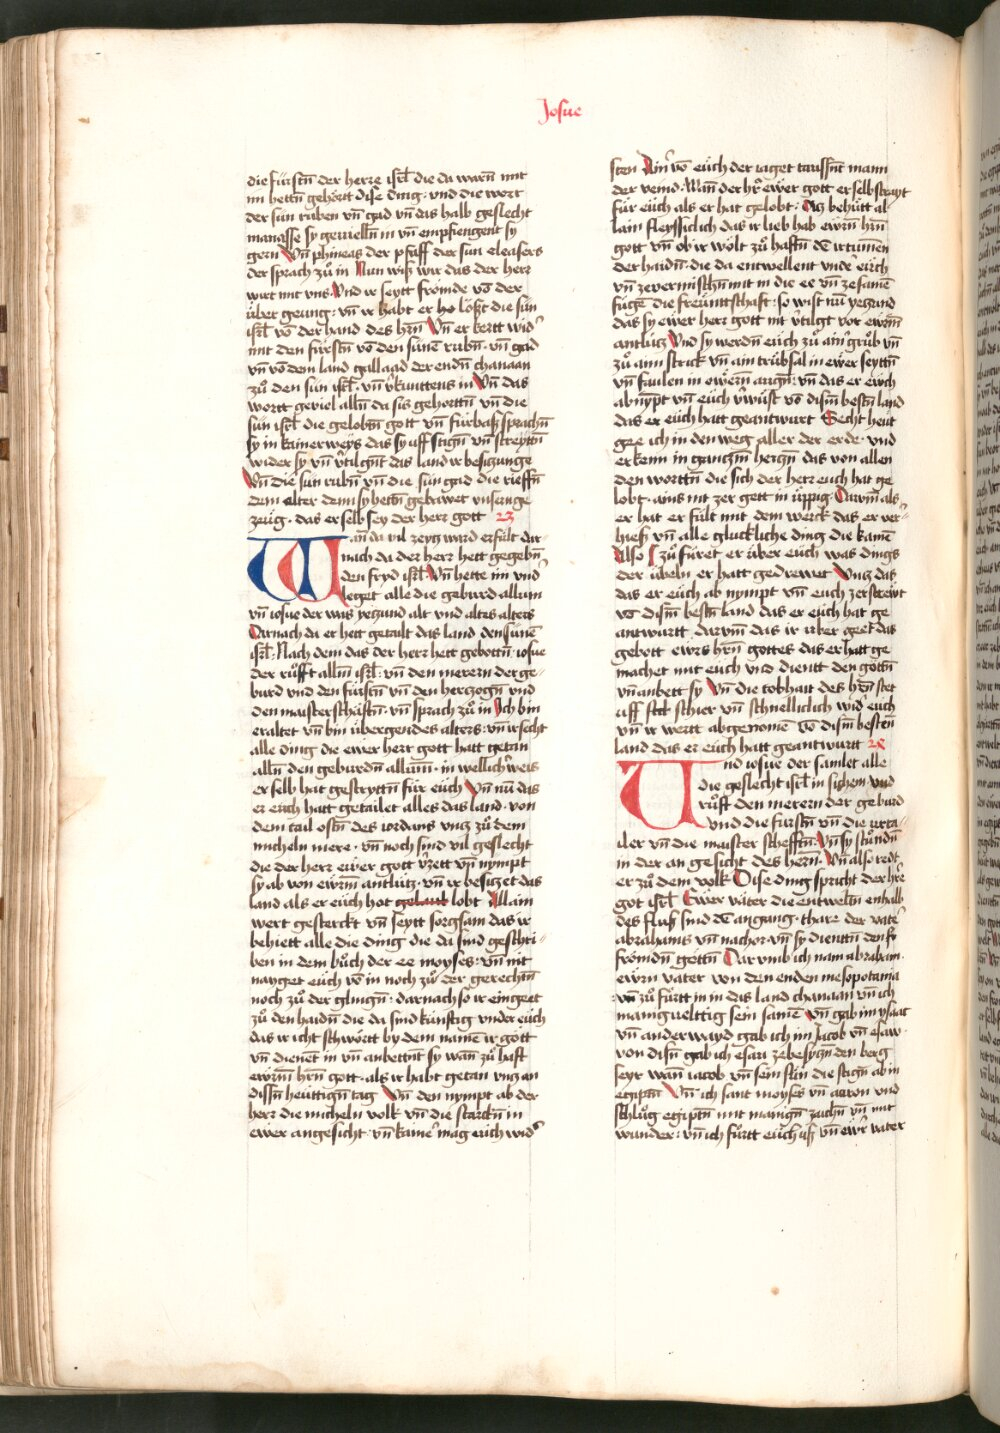 Josue
die fürstn̄ der herre isrl̄ die da warn̄ mit
im hettn̄ gehört dise ding · und die wort
der sün ruben vn̄ gad vn̄ das halb geslecht
manasse sy gerrielln̄ in vn̄ empfiengent sy
gern Vn̄ phineas der pfaff der sun eleasers
der sprach zů in Nun wiss wir das der herr
wirt mit vns · Vnd ir seytt frömde vō der
über geung · vn̄ ir habt er he lößt die sün
isrl̄ vō der hand des hr̄n Vn̄ er kertt wid̾
mit den fürstn̄ vō den sünē rubn̄ · vn̄ gad
vn̄ vō dem land gallaad der endn̄ chanaan
zů den sün isrl̄ · vn̄ v̾kunttens in Vn̄ das
wortt geviel alln̄ da sis gehorttn̄ vn̄ die
sün isrl̄ die gelobtn̄ gott vn̄ fürbas sprachn̄
sy in kainerweys das sy uff stign̄ vn̄ streyttn̄
wider sy vn̄ v̾tilgn̄t das land ir besiczunge
Vn̄ die sün rubn̄ vn̄ die sün gad die rieffn̄
dem alter dem sy hettn̄ gebawet vnsenge
zeüg · das er selb sey der herr gott 23
W an̄ da vil zeyg ward erfült dar-
nach da der herr hett gegebn̄
den fryd isrl̄ Vn̄ hette im vnd̾
leget alle die geburd allum
vn̄ iosue der was yeczund alt vnd altes alters
Darnach da er hett getailt das land den sünē
isrl̄ · Nach dem das der herr hett gebottn̄ · iosue
der růfft alln̄ isrl̄ · vn̄ den merern der ge-
burd vnd den fürstn̄ vn̄ den herczogn̄ vnd
den maisterschäftn̄ · vn̄ sprach zů in Ich bin
eraltet vn̄ bin übergendes alters · vn̄ ir secht
alle ding die ewer herr gott hatt getan
alln̄ den geburdn̄ allum̄ · in wellich̾ weis
er selb hat gestryttn̄ für euch Vn̄ nu das
er euch hatt getailet alles das land · von
dem tail ostn̄ des iordans vncz zů dem
micheln mere · vn̄ noch sind vil geslecht
die der herr ewer gott v̾zett vn̄ nympt
sy ab von ewrm̄ antlütz · vn̄ ir besiczet das
land als er euch hot gelaut lobt Allain
wert gesterckt vn̄ seytt sorgsam das ir
behiett alle die ding die da sind geschri-
ben in dem bůch der ee moyses · vn̄ nit
nayget euch vō in noch zů der gerechtn̄
noch zů der glinggn̄ · darnach so ir eingeet
zů den haidn̄ die da sind künftig vnder euch
das ir icht schwört by dem namē ir · gött
vn̄ dienet in vn̄ anbettn̄t sy wan̄ zů haft
ewrm̄ hrn̄ gott · als ir habt getan vncz an
disn̄ heüttign̄ tag Vn̄ den nympt ab der
herr die micheln volk vn̄ die starckn̄ in
ewer angesicht · vn̄ kainē mag euch wid̾
sten Ain̾ vō euch der iaget tausn̄t mann
der veind · Wan̄ der hr̾ ewer gott er selb streyt
für euch als er hat gelobt · Uz behütt al
lain fleyssiclich das ir lieb hab ewrn̄ hrn̄
gott vn̄ ob ir wölt zů hafftn̄ dē irtumen
der haidn̄ · die da entwellent vnd̾ euch
vn̄ zevermischn̄ mit in die ee vn̄ zesamē
fügē die freünttschaft · so wist nu yeczund
das sy ewer herr gott nit v̾tilgt vor ewrm̄
antlütz Vnd sy werdn̄ euch zů ain̾ grůb vn̄
zů aim strick vn̄ aim trübsal in ewer seyttn̄
vn̄ faulen in ewern augn̄ · vn̄ das er euch
abnypt vn̄ euch v̾wüst vō disn̄ bestn̄ land
das er euch hatt geantwurt Secht heüt
gee ich in den weg aller der erde · vnd
erkenn in ganczm̄ herczn̄ das von allen
den worttn̄ die sich der herz euch hat ge
lobt · ains nit zer gett in üppig · Darum̄ als
er hat er fült mit dem werck das er ver-
hiess vn̄ alle glückliche ding die kamē
Also zů füret er über euch was dings
der übeln er hatt gedrewet Vncz das
das er euch ab nympt vn̄ euch zerstreüt
vō dism̄ bestn̄ land das er euch hat ge
antwurtt · darum̄ das ir über geet das
gebott ewrs hrn̄ gottes das er hatt ge
machet mit euch vnd dientt den göttn̄
vn̄ anbett sy Vn̄ die tobhait des hrn̄ stet
uff stet schier vn̄ schnelliclich wid̾ euch
vn̄ ir wertt abgenomē vō disn̄ besten
land das er euch hatt geantwurtt 24
U nd iosue der samlet alle
die geslecht isrl̄ in sichem vnd
růft den merern der geburd
vnd die fürstn̄ vn̄ die urta-
iler vn̄ die maister schefftn̄ · Vn̄ sy stůndn̄
in der an gesicht des hern̄ · Vn̄ also redt
er zů dem volk Dise ding spricht der hr̾e
got isrl̄ Ewer väter die entweln̄ enhalb
des fluss sind dē angang · thare der vater
abrahams vn̄ nachor vn̄ sy dienttn̄ den fr
frömdn̄ göttn̄ Darumb ich nam abraham ·
ewrn vater von den enden mesopotamia
vn̄ zů fürtt in in das land chanaan vn̄ ich
manigueltttig sein samē vn̄ gab im ysaac
vn̄ anderwayd gab ich im Jacob vn̄ esaw ·
von disn̄ gab ich esau zebesyczn̄ den berg
seyr wan̄ iacob vn̄ sein sün die stign̄ ab in
egiptn̄ Vn̄ ich sant moyses vn̄ aaron vnd
schlůg egiptn̄ mit manign̄ zaichn̄ vn̄ mit
wunder · vn̄ ich fürtt euch uss vn̄ ewr̄ vater